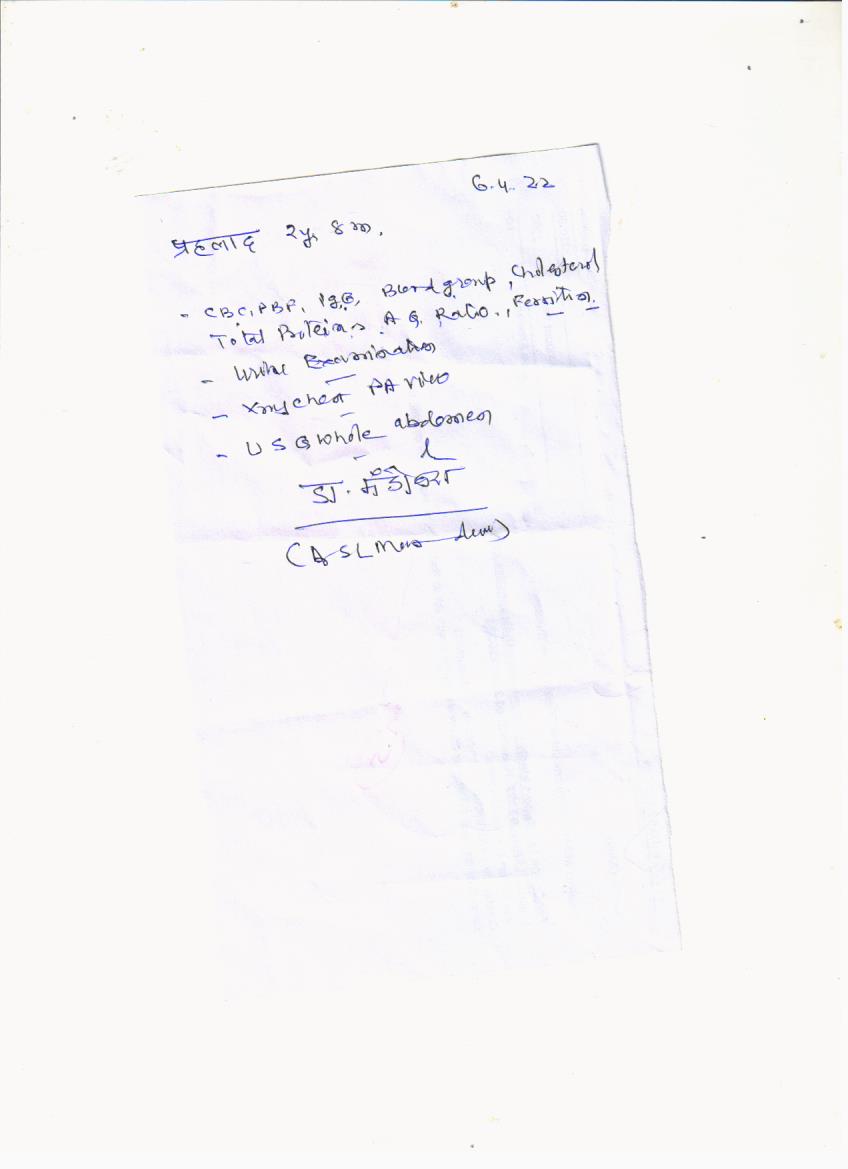 6.4.22
प्रहलाद 2y. 8m.
- CBC, PBF, IgG, Blood group, Cholesterol
Total Proteins A G Ratio., Ferritin.
- Urine Examination
- Xray Chest PA view
- USG whole abdomen
डा. मंडोवरा